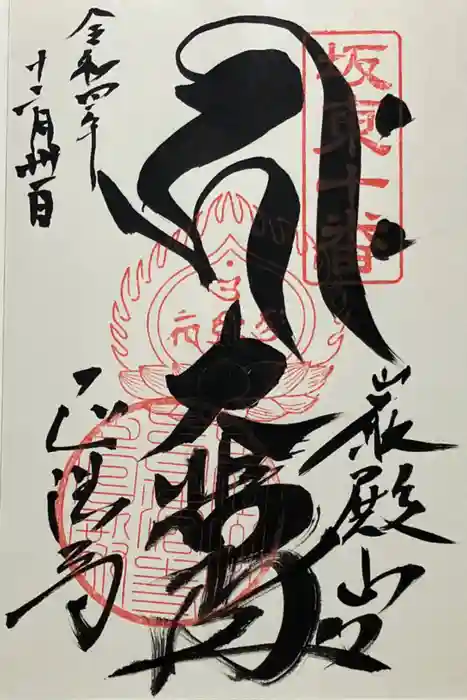 坂東十番
巌殿山
𑖮𑖿𑖨𑖱𑖾
大悲閣
正法寺
令和四年
十二月卅一日